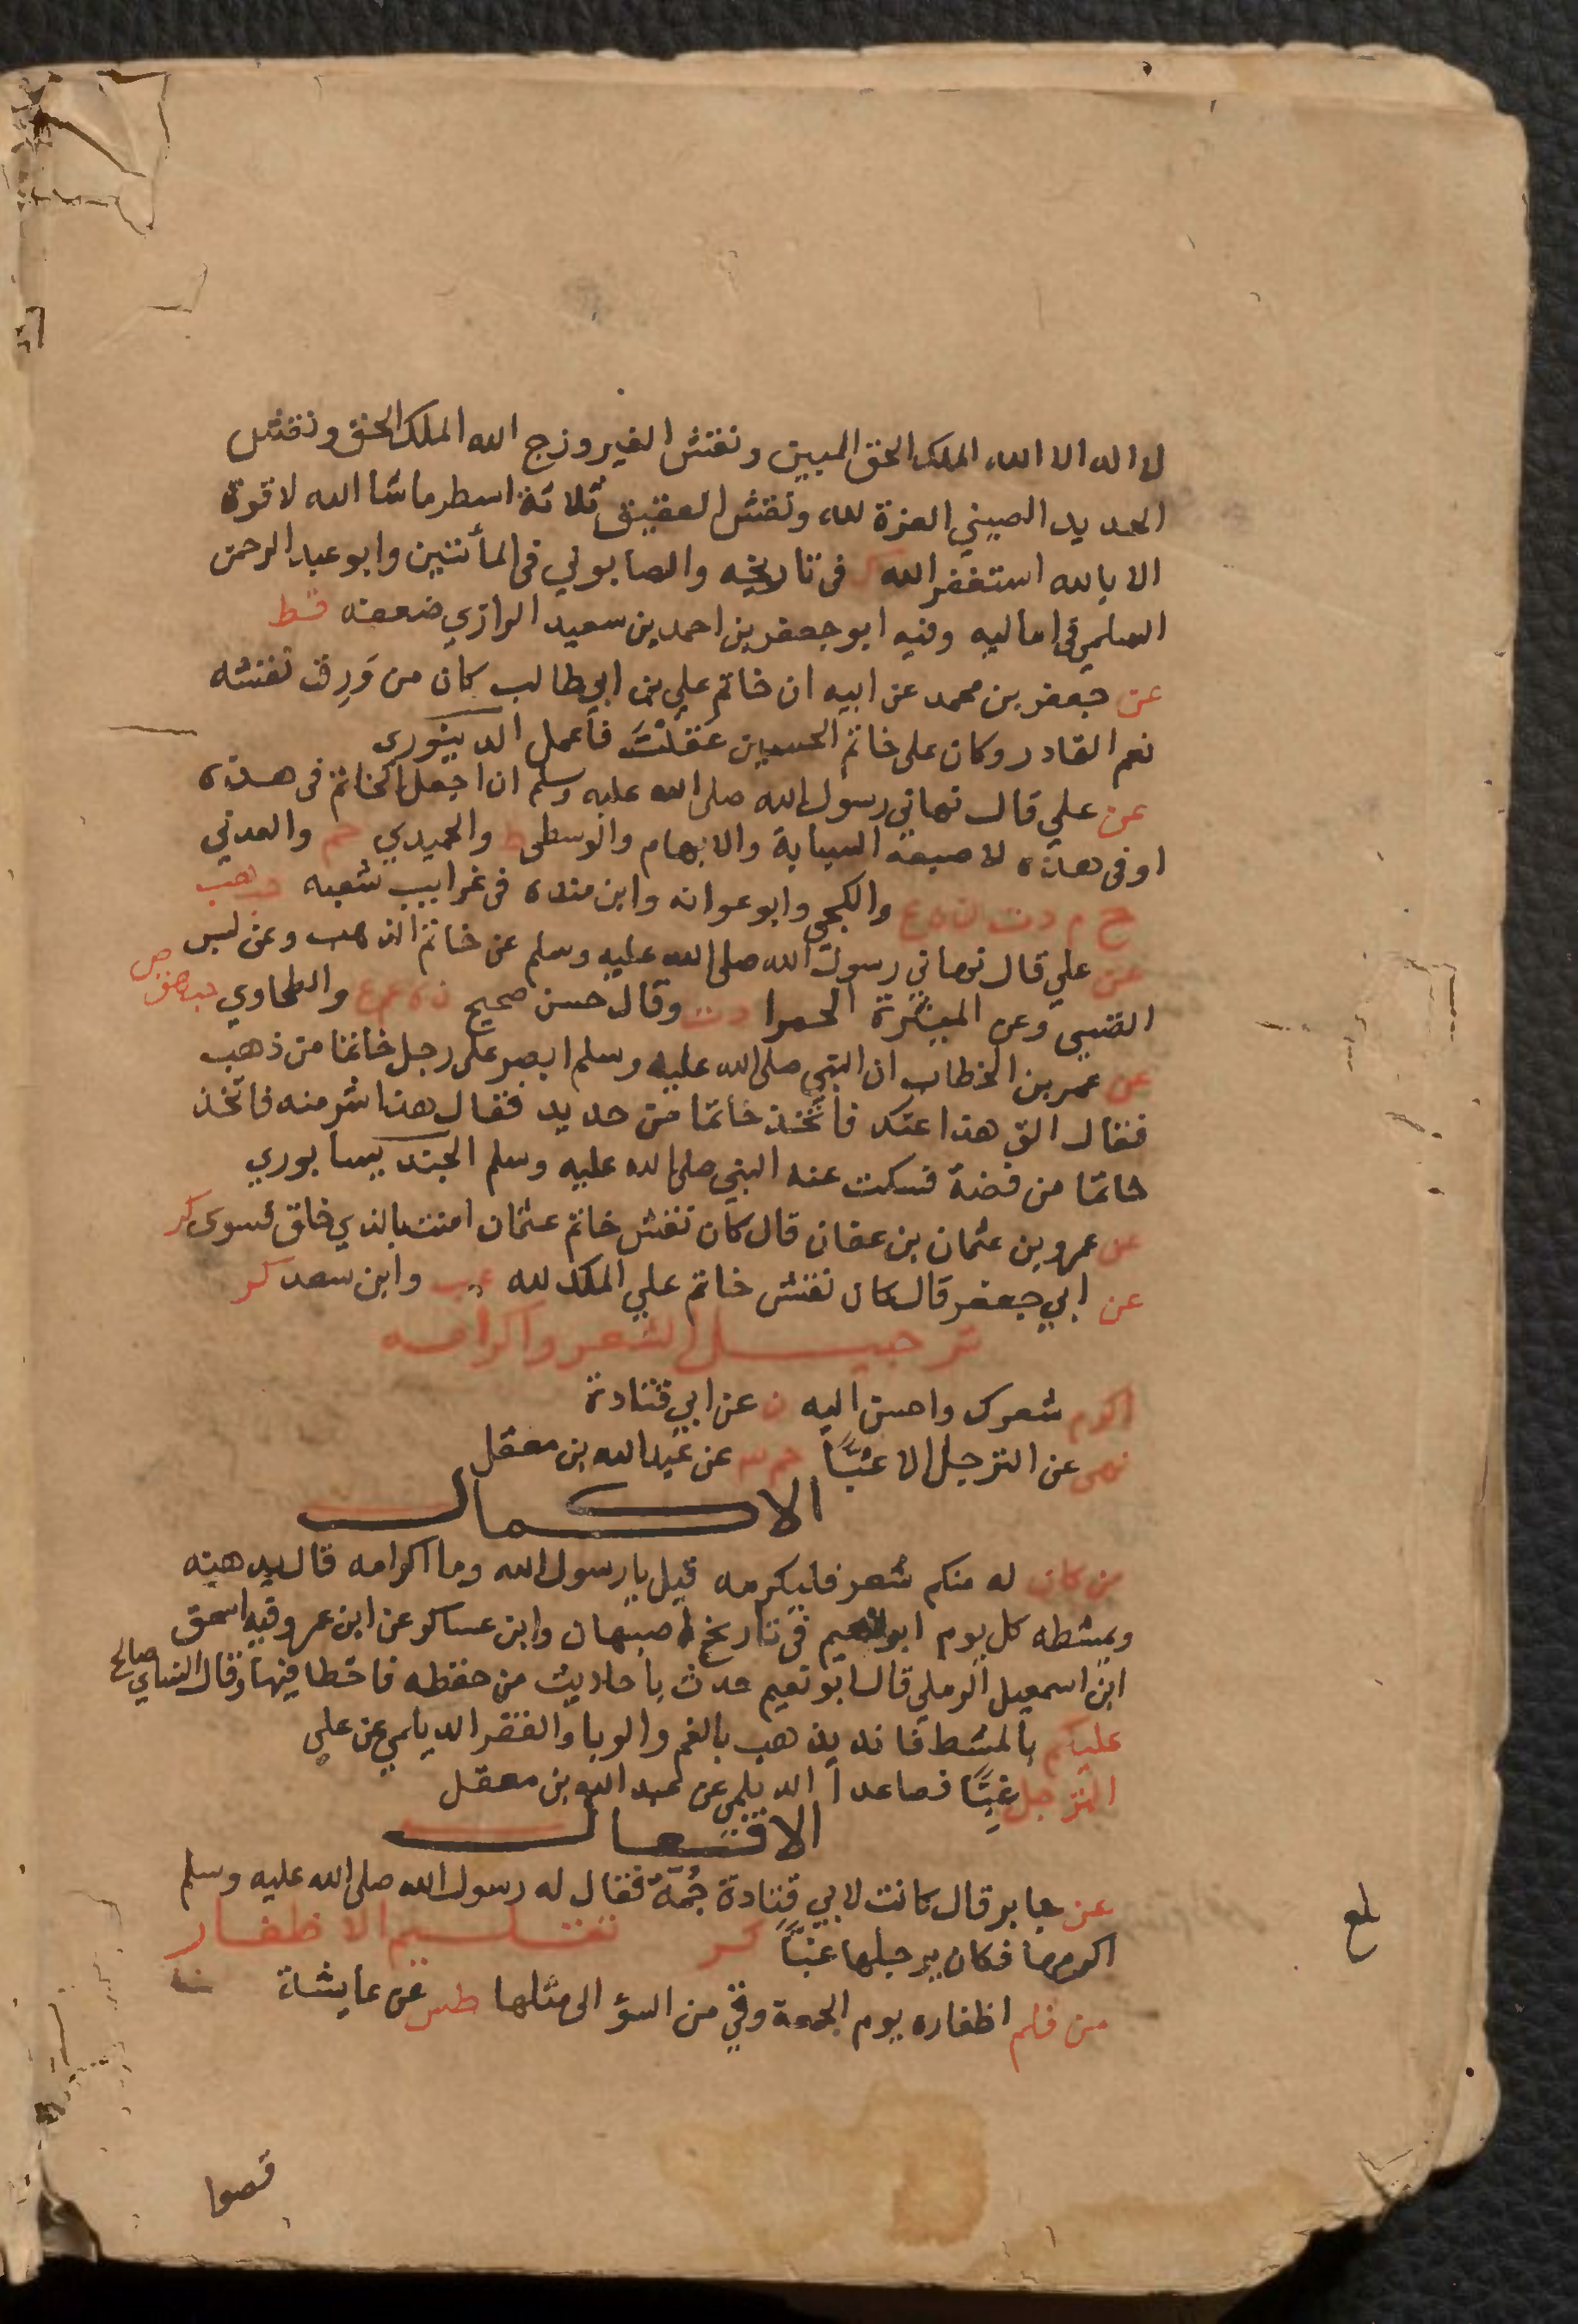 لا اله الا الله الملك الحق المبين ونقش الفيروزج الله الملك الحق ونقش
الحديد الصيني العزة لله ونقش العقيق ثلاثة اسطر ماشا الله لا قوة
الا بالله استغفر الله ك في تاريخه والصابوني في المأتين وابو عبد الرحمن
السلمي في اماليه وفيه ابو جعفر بن احمد بن سعيد الرازي ضعفه قط
عن جعفر بن محمد عن ابيه ان خاتم علي بن ابي طالب كان من وَرِق نقشه
نعم القادر وكان على خاتم الحسين عَقَلْتَ فأعمل الدينوري
عن علي قال نهاني رسول الله صلى الله عليه وسلم ان اجعل الخاتم في هذه
او في هذه لاصبعه السبابة والابهام والوسطى ط والحميدي حم والعدني
خ م د ت ن ه ع والكجي وابو عوانه وابن منده في غرايب شعبه حب هب
عن علي قال نهاني رسول الله صلى الله عليه وسلم عن خاتم الذهب وعن لبس
القسي وعن الميثرة الحمرا د ت وقال حسن صحيح ن ه ع والطحاوي حب ق ص
عن عمر بن الخطاب ان النبي صلى الله عليه وسلم ابصر على رجل خاتما من ذهب
فقال الق هذا عنك فأتخذ خاتما من حديد فقال هذا شر منه فاتخذ
خاتما من فضة فسكت عنه النبي صلى الله عليه وسلم الجنديسابوري
عن عمرو بن عثمان بن عفان قال كان نقش خاتم عثمان امنت بالذي خلق فسوى كر
عن ابي جعفر قال كان نقش خاتم علي الملك لله عب وابن سعد كر
ترجيل الشعر واكرامه
اكرم شعرك واحسن اليه ن عن ابي قتادة
نهى عن الترجل الا غبًّا حم عن عبد الله بن معقل
الاكمال
من كان له منكم شعر فليكرمه قيل يا رسول الله وما اكرامه قال يدهنه
ويمشطه كل يوم ابو نعيم في تاريخ اصبهان وابن عساكر عن ابن عمر وفيه اسحق
ابن اسمعيل الرملي قال ابو نعيم حدث باحاديث من حفظه فاخطا فيها وقال النساي صالح
عليكم بالمشط فانه يذهب بالغم والوبا والفقر الديلمي عن علي
الترجل غبًّا فصاعدا الديلمي عن عبد الله بن معقل
الافعال
عن جابر قال كانت لابي قتادة جُمّة فقال له رسول الله صلى الله عليه وسلم
اكرمها فكان يرجلها غبًّا كر تقليم الاظفار
من قلم اظفاره يوم الجمعة وقي من السؤ الى مثلها طس عن عايشة
بلغ
قصوا